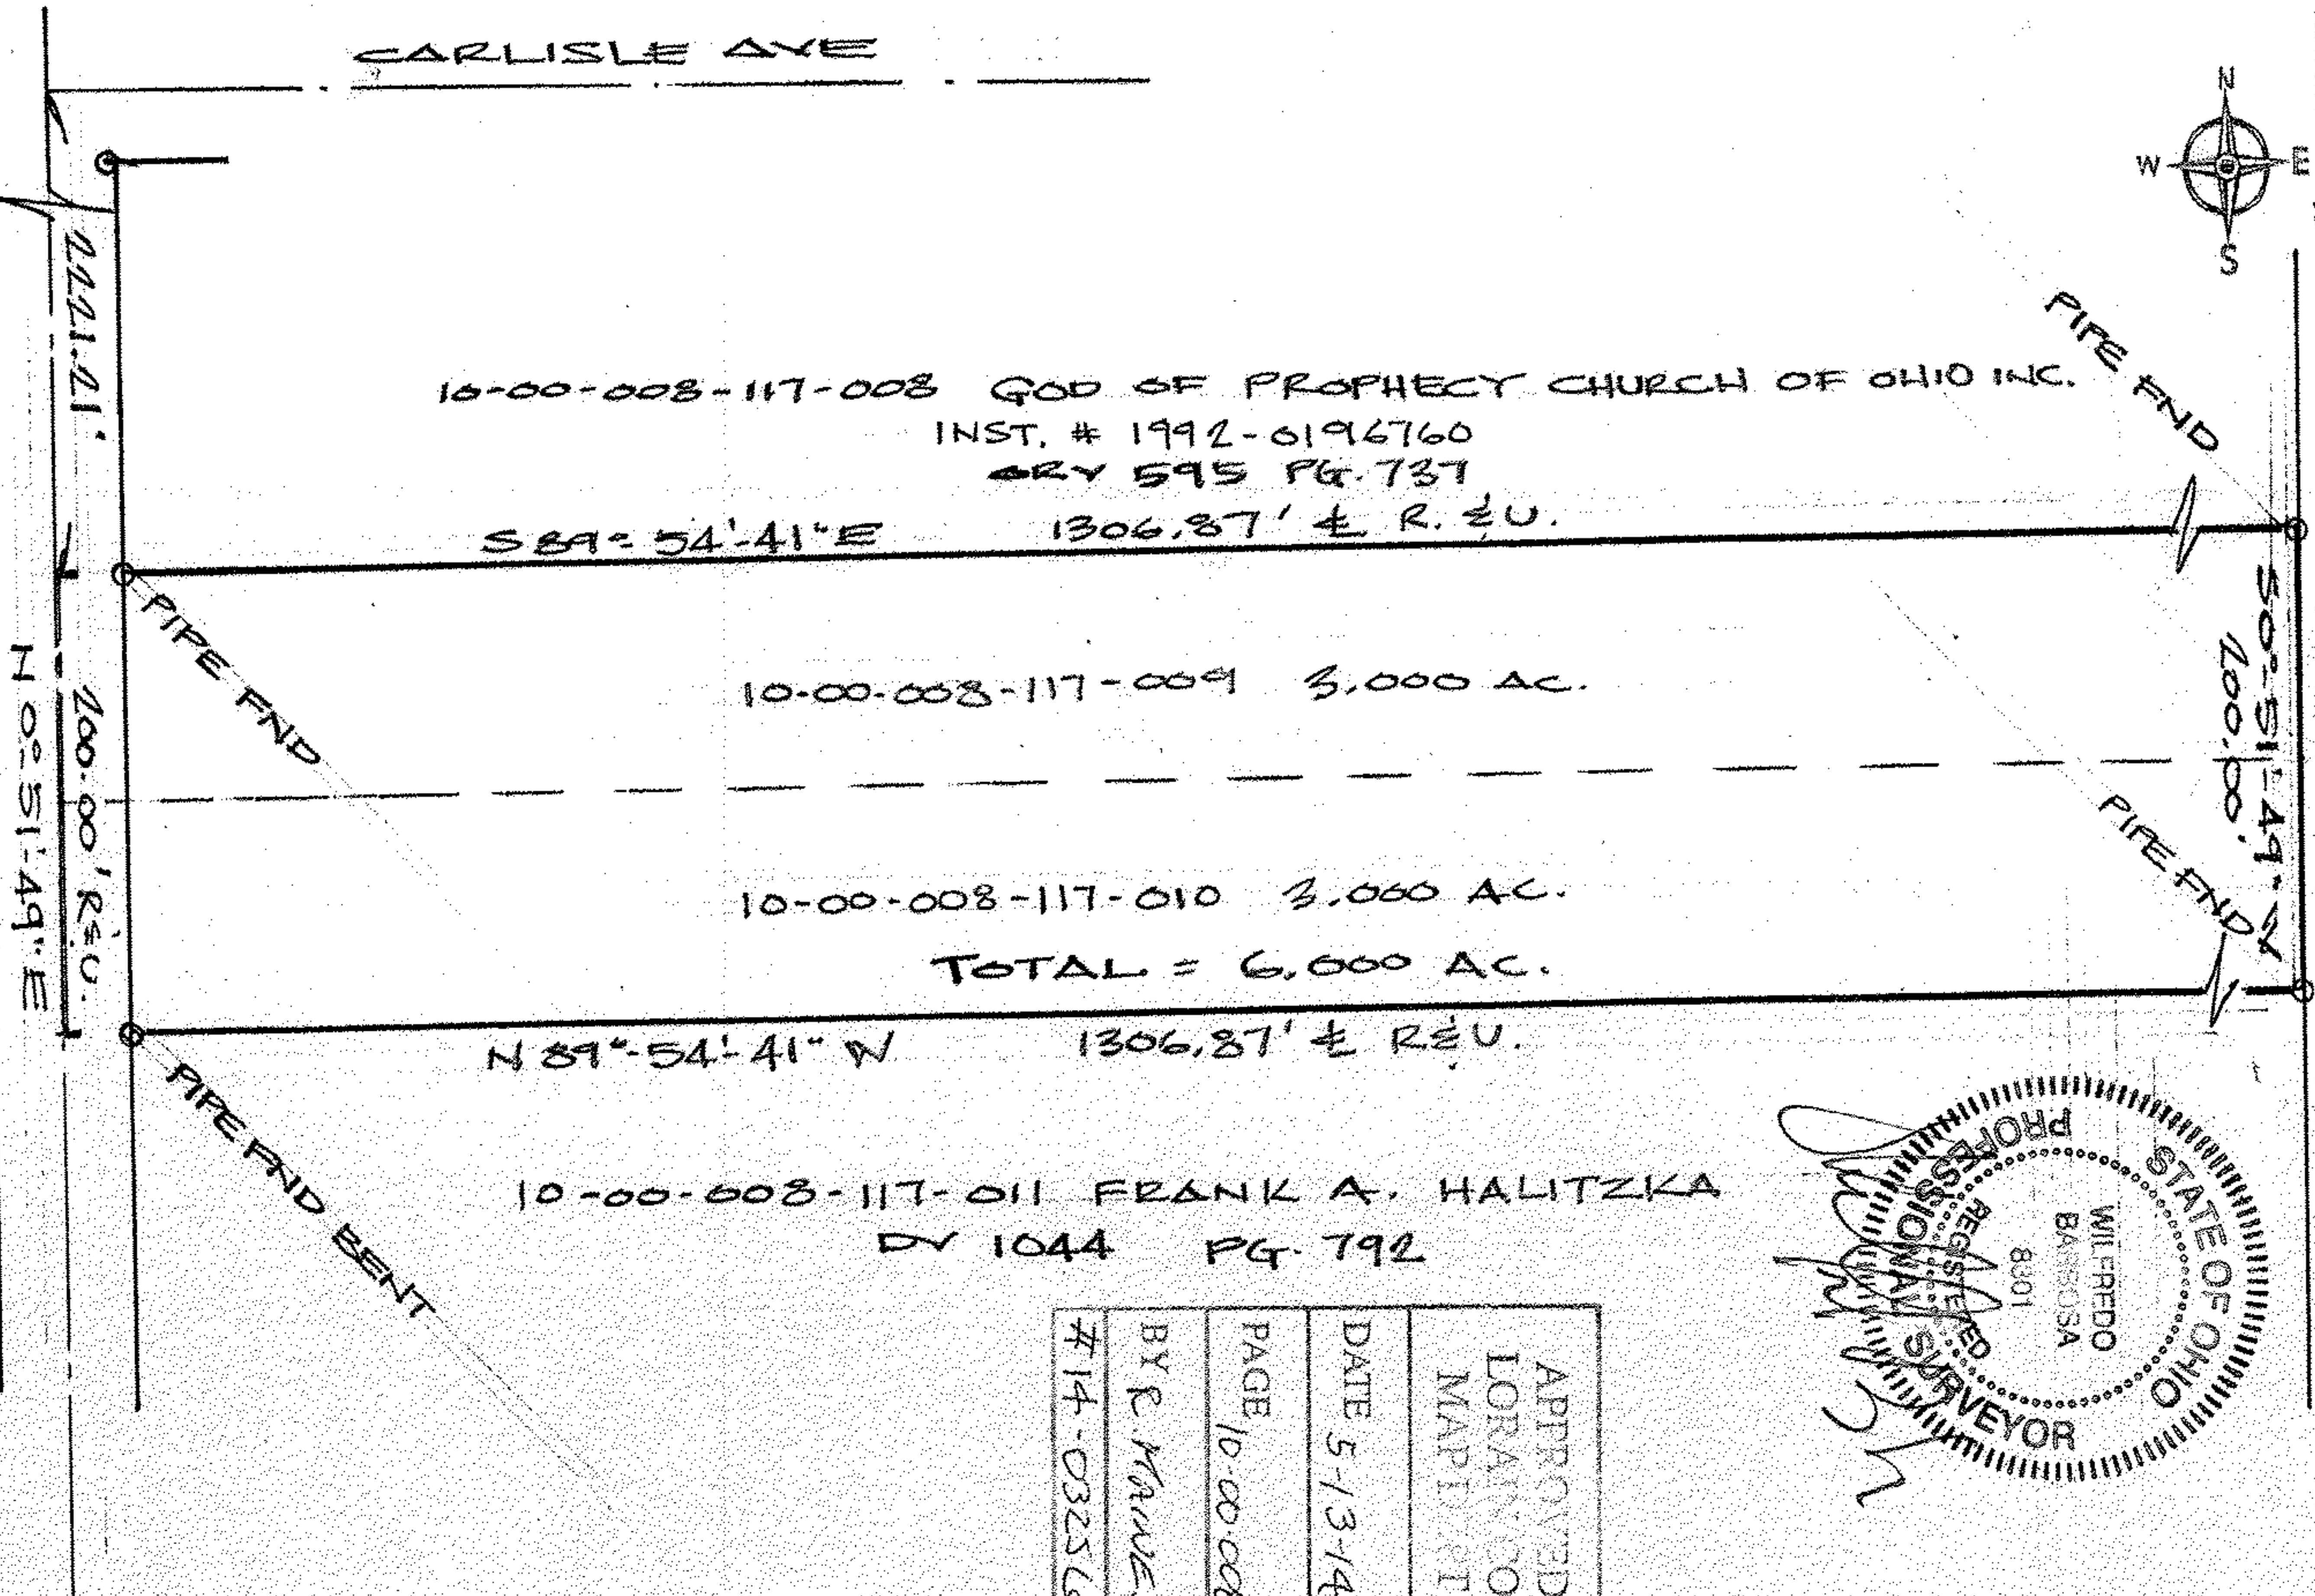 CARLISLE AVE
N
W E
S
2221.21'
PIPE FND
10-00-008-117-008 GOD OF PROPHECY CHURCH OF OHIO INC.
INST. # 1992-0196760
ORV 595 PG. 737
S 89°-54'-41" E 1306.87' ℄ R. & U.
PIPE FND
N 0°-51'-49" E
200.00' R&U.
10-00-008-117-009 3.000 AC.
S 0°-51'-49" W
200.00'
PIPE FND
10-00-008-117-010 3.000 AC.
TOTAL = 6.000 AC.
N 89°-54'-41" W 1306.87' ℄ R&U.
PIPE FND BENT
10-00-008-117-011 FRANK A. HALITZKA
DV 1044 PG. 792
STATE OF OHIO
WILFREDO
8301
REGISTERED
PROFESSIONAL SURVEYOR
APPROVED
LORAIN CO
MAP DEPT
DATE 5-13-14
PAGE 10-00-008
BY R. MAINE
#14-0325